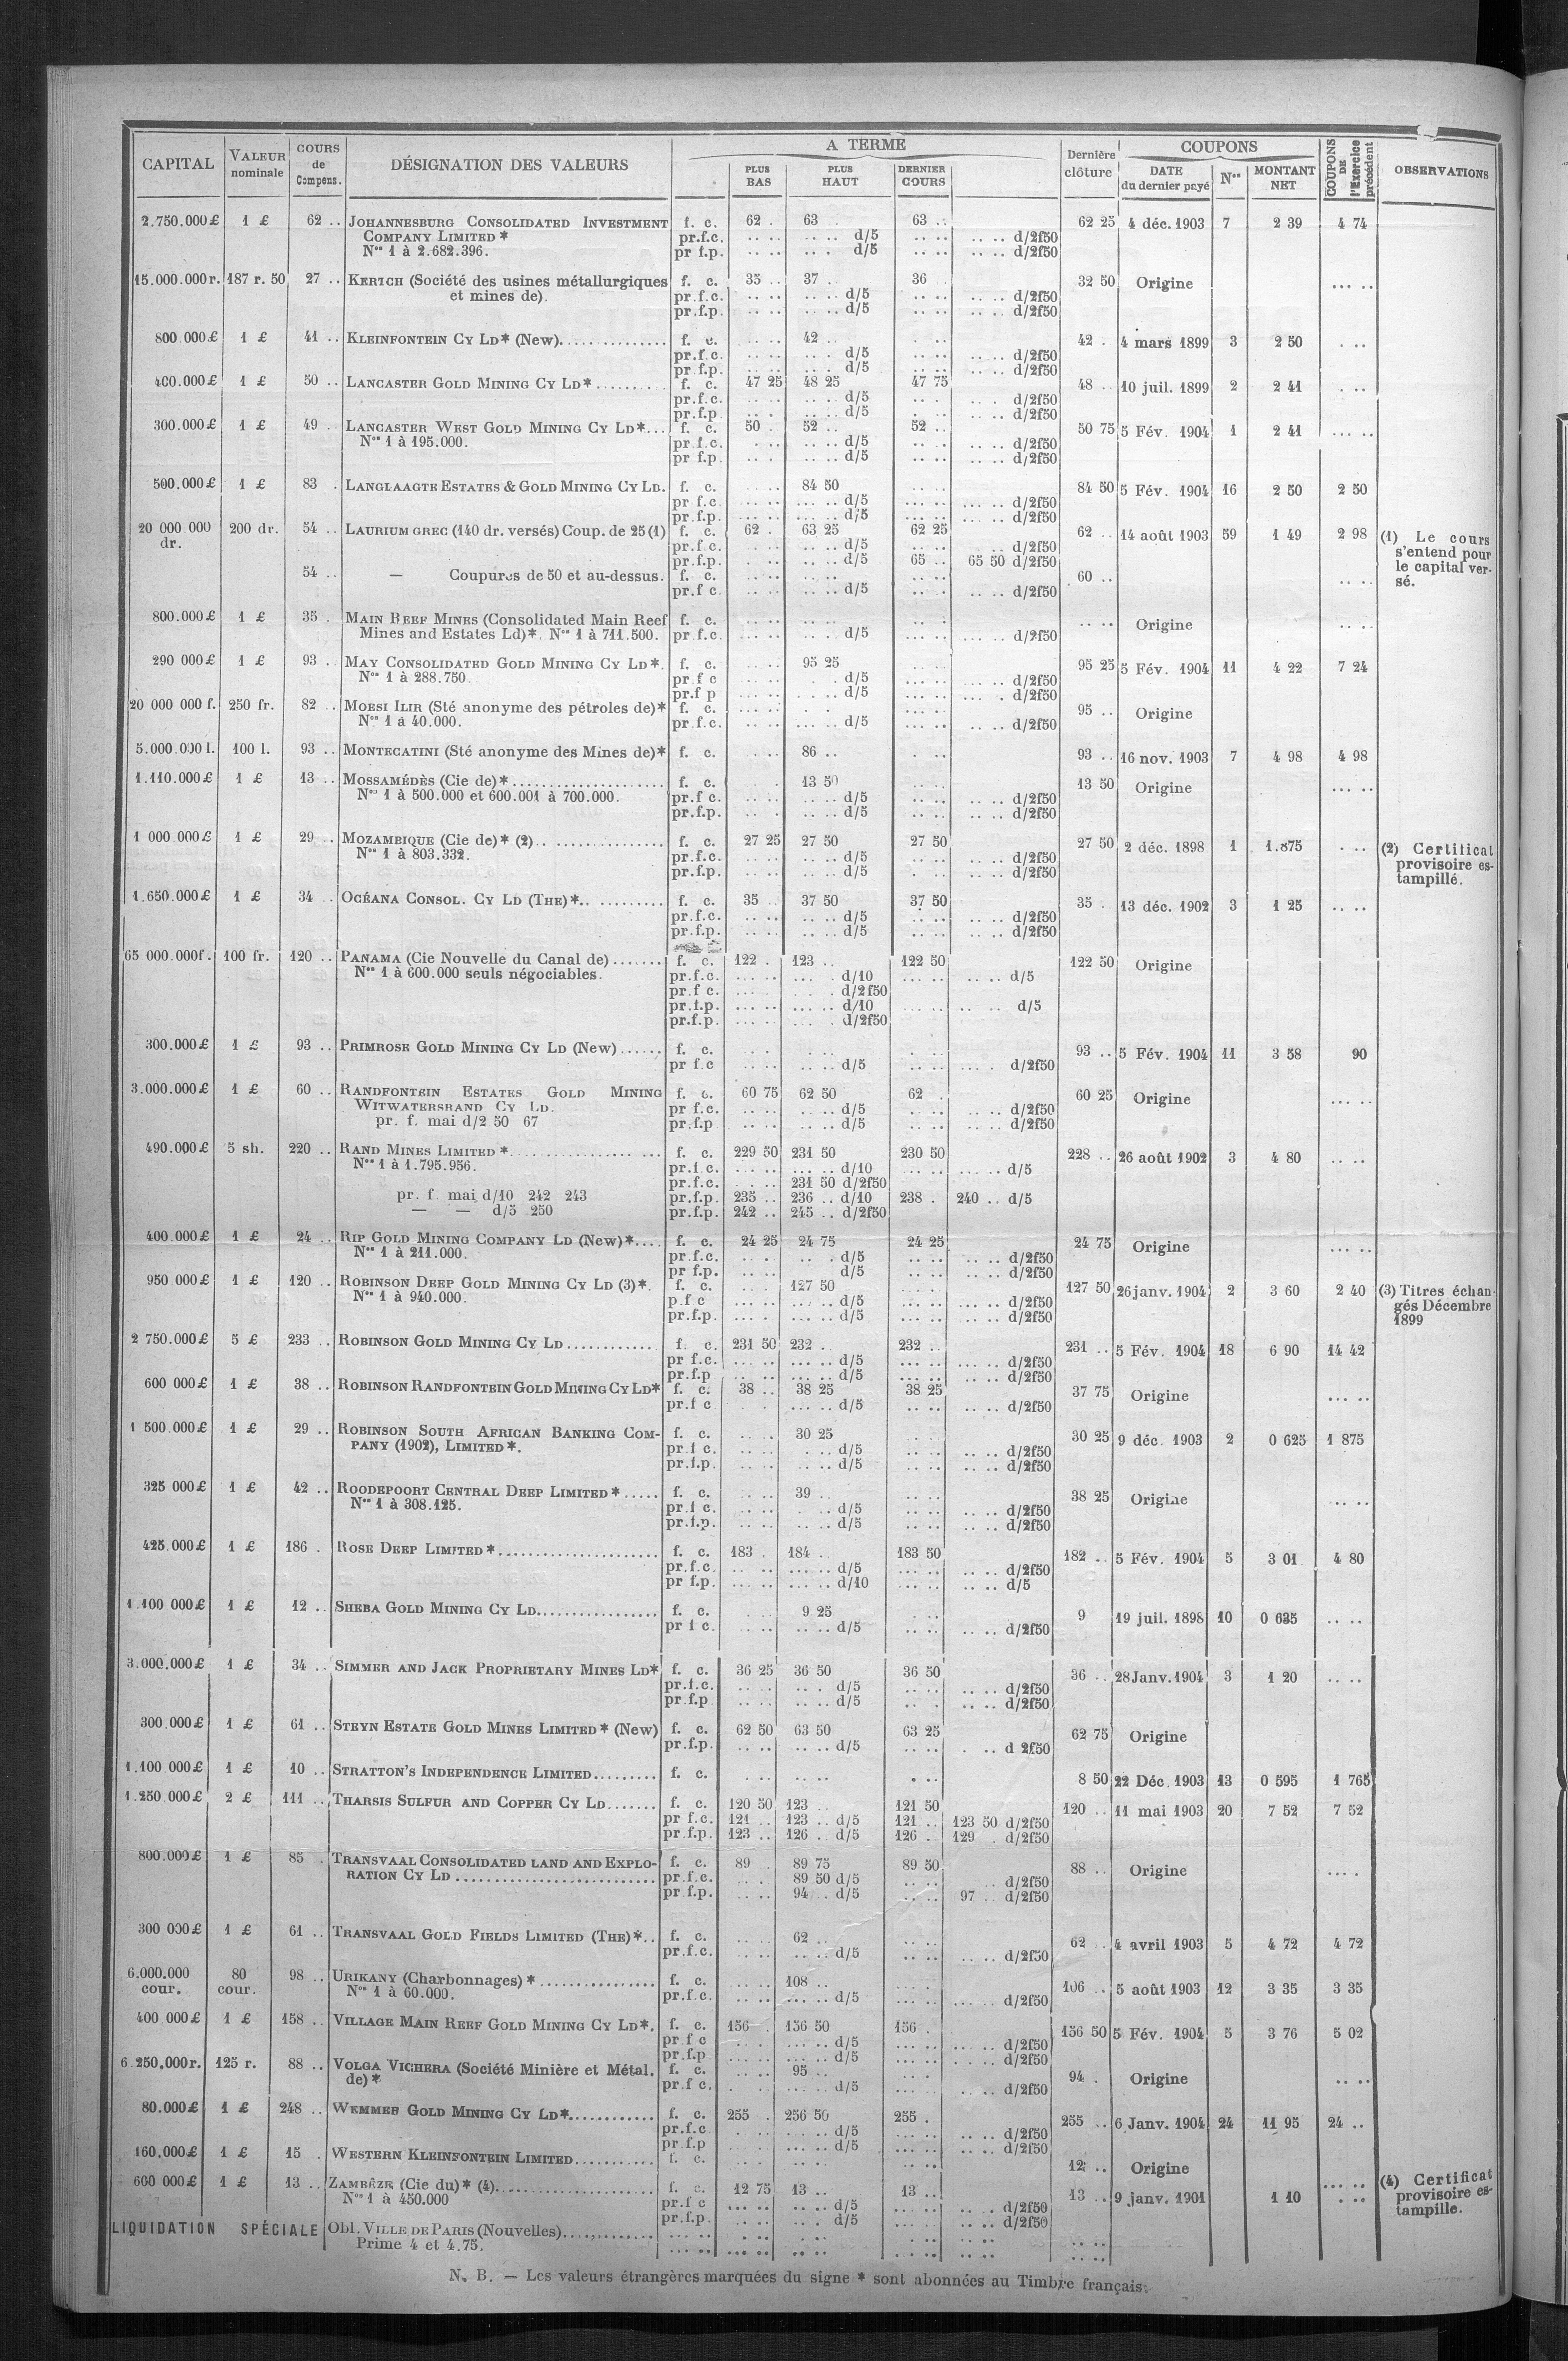 CAPITAL VALEUR nominale COURS de Compens. DÉSIGNATION DES VALEURS A TERME PLUS BAS PLUS HAUT DERNIER COURS Dernière clôture COUPONS DATE du dernier payé Nos MONTANT NET COUPONS DE l'Exercice précédent OBSERVATIONS
2.750.000£ 1 £ 62 .. JOHANNESBURG CONSOLIDATED INVESTMENT f. c. 62 . 63 63 .. 62 25 4 déc. 1903 7 2 39 4 74
COMPANY LIMITED * pr.f.c. .. .. .. .. d/5 .. .. .. .. d/2f50
Nos 1 à 2.682.396. pr f.p. .. .. .. . d/5 .. .. .. .. d/2f50
15.000.000r. 187 r. 50 27 .. KERTCH (Société des usines métallurgiques f. c. 35 .. 37 .. 36 32 50 Origine ... ..
et mines de). pr.f.c. .. .. .. .. d/5 .. .. .. .. d/2f50
pr.f.p. .. .. .. .. d/5 .. .. .. .. d/2f50
800.000£ 1 £ 41 .. KLEINFONTEIN CY LD* (New).............. f. c. 42 .. 42 . 4 mars 1899 3 2 50 . ..
pr.f.c. d/5 .. .. d/2f50
pr.f.p. d/5 .. .. d/2f50
400.000£ 1 £ 50 .. LANCASTER GOLD MINING CY LD*......... f. c. 47 25 48 25 47 75 48 .. 10 juil. 1899 2 2 41 . ..
pr.f.c. .. .. d/5 d/2f50
pr.f.p .. .. d/5 .. .. d/2f50
300.000£ 1 £ 49 .. LANCASTER WEST GOLD MINING CY LD*... f. c. 50 . 52 .. 52 .. 50 75 5 Fév. 1904 1 2 41 ... ..
Nos 1 à 195.000. pr.f.c. .. .. d/5 .. .. d/2f50
pr f.p. .. .. d/5 .. .. d/2f50
500.000£ 1 £ 83 . LANGLAAGTE ESTATES & GOLD MINING CY LD. f. c. 84 50 84 50 5 Fév. 1904 16 2 50 2 50
pr f.c. ... .. d/5 ... .. d/2f50
pr.f.p. ... .. d/5 ... .. d/2f50
20 000 000 200 dr. 54 .. LAURIUM GREC (140 dr. versés) Coup. de 25 (1) f. c. 62 . 63 25 62 25 62 .. 14 août 1903 59 1 49 2 98 (1) Le cours
dr. pr.f.c. .. .. d/5 .. d/2f50 s'entend pour
pr.f.p. .. .. d/5 65 .. 65 50 d/2f50 le capital ver-
54 .. — Coupures de 50 et au-dessus. f. c. 60 .. sé.
pr.f c. .. .. d/5 .. .. d/2f50
800.000£ 1 £ 35 . MAIN REEF MINES (Consolidated Main Reef f. c. .. .. Origine
Mines and Estates Ld)*. Nos 1 à 711.500. pr.f.c. .. .. d/5 ... .. d/2f50
290 000£ 1 £ 93 .. MAY CONSOLIDATED GOLD MINING CY LD*. f. c. 95 25 95 25 5 Fév. 1904 11 4 22 7 24
Nos 1 à 288.750. pr.f c d/5 ... .. d/2f50
pr.f p .. .. d/5 d/2f50
20 000 000 f. 250 fr. 82 .. MOESI ILIR (Sté anonyme des pétroles de)* f. c. 95 .. Origine
Nos 1 à 40.000. pr.f.c. ... .. d/5 ... .. d/2f50
5.000.000 l. 100 l. 93 .. MONTECATINI (Sté anonyme des Mines de)* f. c. 86 .. 93 .. 16 nov. 1903 7 4 98 4 98
1.110.000£ 1 £ 13 .. MOSSAMÉDÈS (Cie de)*...................... f. c. 13 50 13 50 Origine ... ..
Nos 1 à 500.000 et 600.001 à 700.000. pr.f c. .. .. d/5 .. .. d/2f50
pr.f.p. .. .. d/5 .. .. d/2f50
1 000 000£ 1 £ 29 .. MOZAMBIQUE (Cie de)* (2)................ f. c. 27 25 27 50 27 50 27 50 2 déc. 1898 1 1.875 . .. (2) Certificat
Nos 1 à 803.332. pr.f.c. .. .. d/5 .. .. d/2f50 provisoire es-
pr.f.p. .. .. d/5 .. .. d/2f50 tampillé.
1.650.000£ 1 £ 34 .. OCÉANA CONSOL. CY LD (THE)*........... f. c. 35 .. 37 50 37 50 35 . 13 déc. 1902 3 1 25 .. ..
pr.f.c. .. .. d/5 .. .. d/2f50
pr.f.p. .. .. d/5 .. .. d/2f50
65 000.000f. 100 fr. 120 .. PANAMA (Cie Nouvelle du Canal de)....... f. c. 122 . 123 .. 122 50 122 50 Origine
Nos 1 à 600.000 seuls négociables. pr.f.c. ... .. d/10 .. .. d/5
pr.f c. d/2f50
pr.f.p. ... .. d/10 d/5
pr.f.p. d/2f50
300.000£ 1 £ 93 .. PRIMROSE GOLD MINING CY LD (New)...... f. c. 93 .. 5 Fév. 1904 11 3 58 90
pr f.c .. .. d/5 d/2f50
3.000.000£ 1 £ 60 .. RANDFONTEIN ESTATES GOLD MINING f. c. 60 75 62 50 62 60 25 Origine ... ..
WITWATERSRAND CY LD. pr f.c. .. .. d/5 .. .. d/2f50
pr. f. mai d/2 50 67 pr.f.p .. .. d/5 .. .. d/2f50
490.000£ 5 sh. 220 .. RAND MINES LIMITED *................... f. c. 229 50 231 50 230 50 228 .. 26 août 1902 3 4 80 .. ..
Nos 1 à 1.795.956. pr.f.c. ... .. d/10 ... .. d/5
pr.f.c. 231 50 d/2f50
pr. f. mai d/10 242 243 pr.f.p. 235 .. 236 .. d/10 238 . 240 .. d/5
— — d/5 250 pr.f.p. 242 .. 245 .. d/2f50
400.000£ 1 £ 24 .. RIP GOLD MINING COMPANY LD (New)*.... f. c. 24 25 24 75 24 25 24 75 Origine ... ..
Nos 1 à 211.000. pr.f.c. .. d/5 .. .. d/2f50
pr f.p. d/5 .. .. d/2f50
950 000£ 1 £ 120 .. ROBINSON DEEP GOLD MINING CY LD (3)*. f. c. 127 50 127 50 26 janv. 1904 2 3 60 2 40 (3) Titres échan-
Nos 1 à 940.000. p.f c ... .. d/5 ... .. d/2f50 gés Décembre
pr.f.p. ... .. d/5 ... .. d/2f50 1899
2 750.000£ 5 £ 233 .. ROBINSON GOLD MINING CY LD............ f. c. 231 50 232 . 232 .. 231 .. 5 Fév. 1904 18 6 90 14 42
pr f.c. ... .. d/5 ... .. d/2f50
pr.f.p ... .. d/5 .. .. d/2f50
600 000£ 1 £ 38 .. ROBINSON RANDFONTEIN GOLD MINING CY LD* f. c. 38 .. 38 25 38 25 37 75 Origine ... ..
pr.f c ... .. d/5 .. .. d/2f50
1 500.000£ 1 £ 29 .. ROBINSON SOUTH AFRICAN BANKING COM- f. c. 30 25 30 25 9 déc. 1903 2 0 625 1 875
PANY (1902), LIMITED*. pr.f c. .. .. d/5 .. .. d/2f50
pr.f.p. .. .. d/5 .. .. d/2f50
325 000£ 1 £ 42 .. ROODEPOORT CENTRAL DEEP LIMITED *..... f. c. 39 .. 38 25 Origine .. ..
Nos 1 à 308.125. pr.f c. .. .. d/5 .. .. d/2f50
pr.f.p. .. .. d/5 .. .. d/2f50
425.000£ 1 £ 186 . ROSE DEEP LIMITED *...................... f. c. 183 . 184 . 183 50 182 .. 5 Fév. 1904 5 3 01 4 80
pr.f.c. ... .. d/5 .. .. d/2f50
pr f.p. ... .. d/10 .. .. d/5
1.100 000£ 1 £ 12 .. SHEBA GOLD MINING CY LD................ f. c. 9 25 9 19 juil. 1898 10 0 635 .. ..
pr f c. .. .. d/5 .. .. d/2f50
3.000.000£ 1 £ 34 .. SIMMER AND JACK PROPRIETARY MINES LD* f. c. 36 25 36 50 36 50 36 .. 28 Janv. 1904 3 1 20 .. ..
pr.f.c. .. . d/5 .. .. d/2f50
pr.f.p .. .. d/5 .. .. d/2f50
300.000£ 1 £ 61 .. STEYN ESTATE GOLD MINES LIMITED * (New) f. c. 62 50 63 50 63 25 62 75 Origine
pr.f.p. .. .. d/5 . .. d 2f50
1.100 000£ 1 £ 10 .. STRATTON'S INDEPENDENCE LIMITED......... f. c. 8 50 22 Déc. 1903 13 0 595 1 765
1.250.000£ 2 £ 111 .. THARSIS SULFUR AND COPPER CY LD....... f. c. 120 50 123 .. 121 50 120 .. 11 mai 1903 20 7 52 7 52
pr f.c. 121 .. 123 .. d/5 121 .. 123 50 d/2f50
pr.f.p. 123 .. 126 . d/5 126 . 129 . d/2f50
800.000£ 1 £ 85 . TRANSVAAL CONSOLIDATED LAND AND EXPLO- f. c. 89 . 89 75 89 50 88 .. Origine
RATION CY LD ......................... pr.f.c. 89 50 d/5 .. d/2f50
pr f.p. 94 .. d/5 97 .. d/2f50
300 000£ 1 £ 61 .. TRANSVAAL GOLD FIELDS LIMITED (THE)*.. f. c. 62 .. 62 .. 4 avril 1903 5 4 72 4 72
pr.f.c. ... .. d/5 .. .. d/2f50
6.000.000 80 98 .. URIKANY (Charbonnages) *............... f. c. 108 .. 106 .. 5 août 1903 12 3 35 3 35
cour. cour. Nos 1 à 60.000. pr.f.c. ... .. d/5 ... .. d/2f50
400 000£ 1 £ 158 .. VILLAGE MAIN REEF GOLD MINING CY LD*. f. c. 156 . 156 50 156 . 156 50 5 Fév. 1904 5 3 76 5 02
pr.f c ... .. d/5 .. .. d/2f50
pr.f.p ... .. d/5 .. .. d/2f50
6.250.000r. 125 r. 88 .. VOLGA VICHERA (Société Minière et Métal. f. c. 95 .. 94 . Origine .. ..
de)* pr.f c. ... .. d/5 .. .. d/2f50
80.000£ 1 £ 248 .. WEMMER GOLD MINING CY LD*............ f. c. 255 . 256 50 255 . 255 .. 6 Janv. 1904 24 11 95 24 ..
pr.f.c ... .. d/5 .. .. d/2f50
pr.f.p ... .. d/5 .. .. d/2f50
160.000£ 1 £ 15 . WESTERN KLEINFONTEIN LIMITED........... f. c. 12 .. Origine
600 000£ 1 £ 13 .. ZAMBÈZE (Cie du)* (4)...................... f. c. 12 75 13 .. 13 .. 13 .. 9 janv. 1901 1 10 . .. (4) Certificat
Nos 1 à 450.000 pr.f c ... .. d/5 .. . d/2f50 provisoire es-
pr.f.p. .. .. d/5 .. .. d/2f50 tampille.
LIQUIDATION SPÉCIALE Obl. VILLE DE PARIS (Nouvelles)..............
Prime 4 et 4.75.
N. B. — Les valeurs étrangères marquées du signe * sont abonnées au Timbre français.